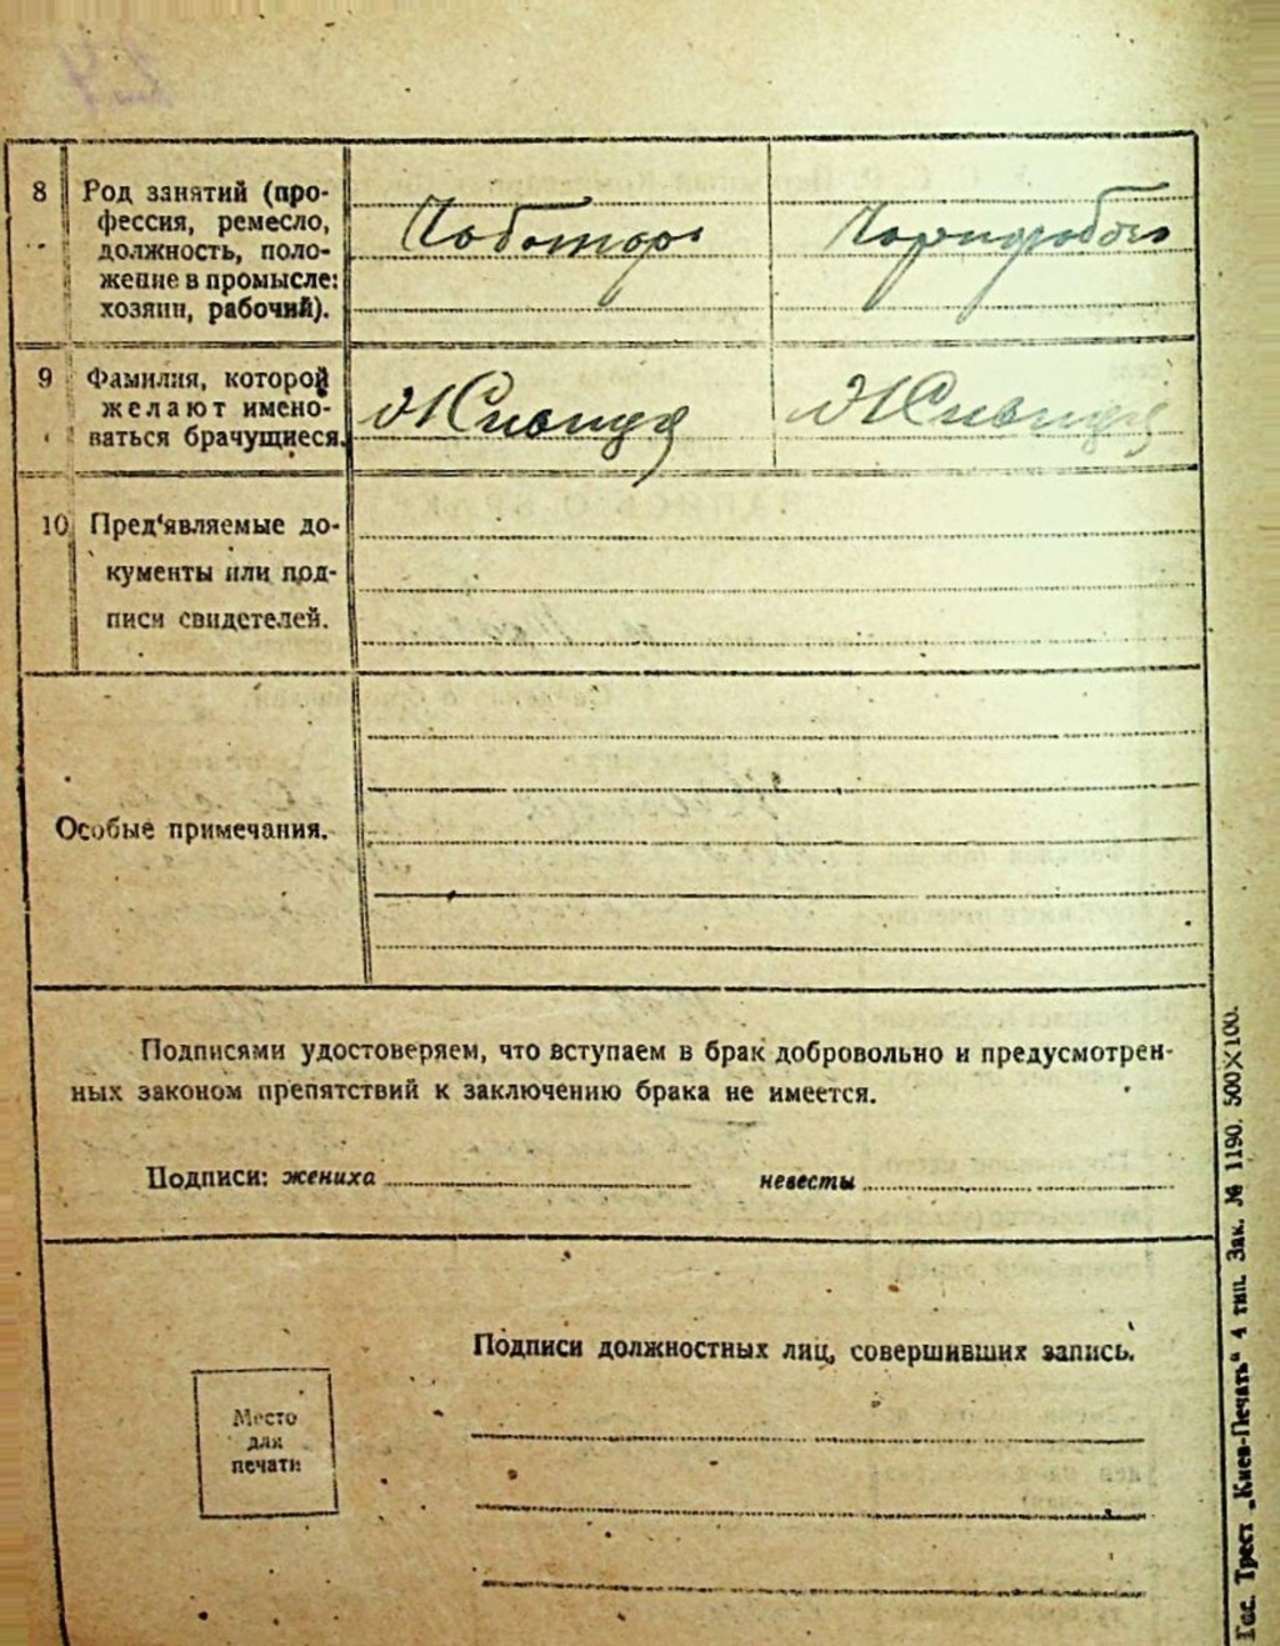 8 Род занятий (про-
фессия, ремесло,
должность, поло-
жение в промысле:
хозяин, рабочий).
Чоботарь Чорнороб
9 Фамилия, которой
желают имено-
ваться брачущиеся.
10 Пред'являемые до-
кументы или под-
писи свидетелей.
Особые примечания.
Подписями удостоверяем, что вступаем в брак добровольно и предусмотрен-
ных законом препятствий к заключению брака не имеется.
Подписи: жениха невесты
Подписи должностных лиц, совершивших запись.
Место
для
печати
Гос. Трест „Киев-Печать“ 4 тип. Зак. № 1190. 500×100.